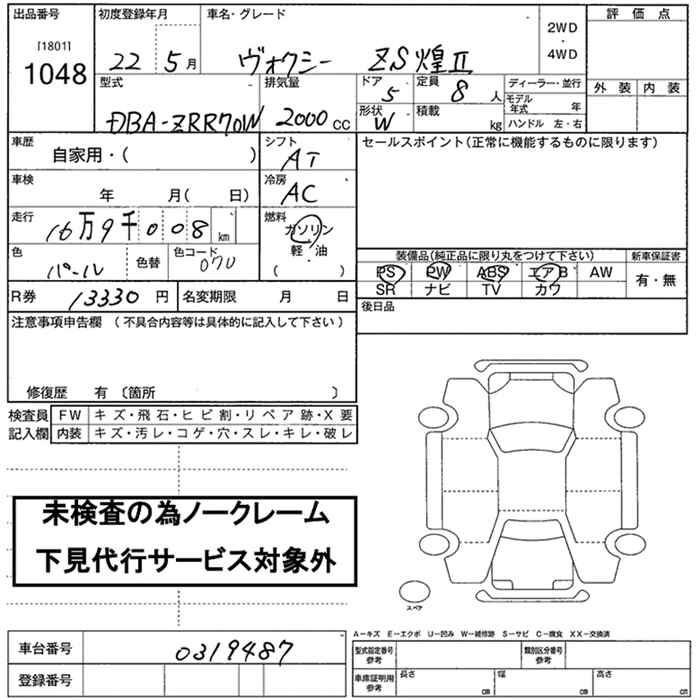 出品番号 初度登録年月 車名・グレード 評価点
[1801]
1048 22 5月 ヴォクシー ZS煌II 2WD・4WD
外装 内装
型式 排気量 ドア 定員 ディーラー・並行
DBA-ZRR70W 2000cc 5 8人 モデル年式 年
形状 積載 ハンドル 左・右
W kg
車歴 シフト セールスポイント(正常に機能するものに限ります)
自家用・( ) AT
車検 冷房
年 月( 日) AC
走行 燃料
16万9千008km ガソリン
軽・油
( )
色 色替 色コード
パール 070
装備品(純正品に限り丸をつけて下さい) 新車保証書
PS PW ABS エアB AW 有・無
SR ナビ TV カワ
R券 13330円 名変期限 月 日 後日品
注意事項申告欄 (不具合内容等は具体的に記入して下さい)
修復歴 有 〔箇所 〕
検査員 FW キズ・飛石・ヒビ割・リペア跡・X要
記入欄 内装 キズ・汚レ・コゲ・穴・スレ・キレ・破レ
未検査の為ノークレーム
下見代行サービス対象外
スペア
A-キズ E-エクボ U-凹み W-補修跡 S-サビ C-腐食 XX-交換済
車台番号 0319487 型式指定番号 参考 類別区分番号 参考
登録番号 車庫証明用 参考 長さ cm 幅 cm 高さ cm